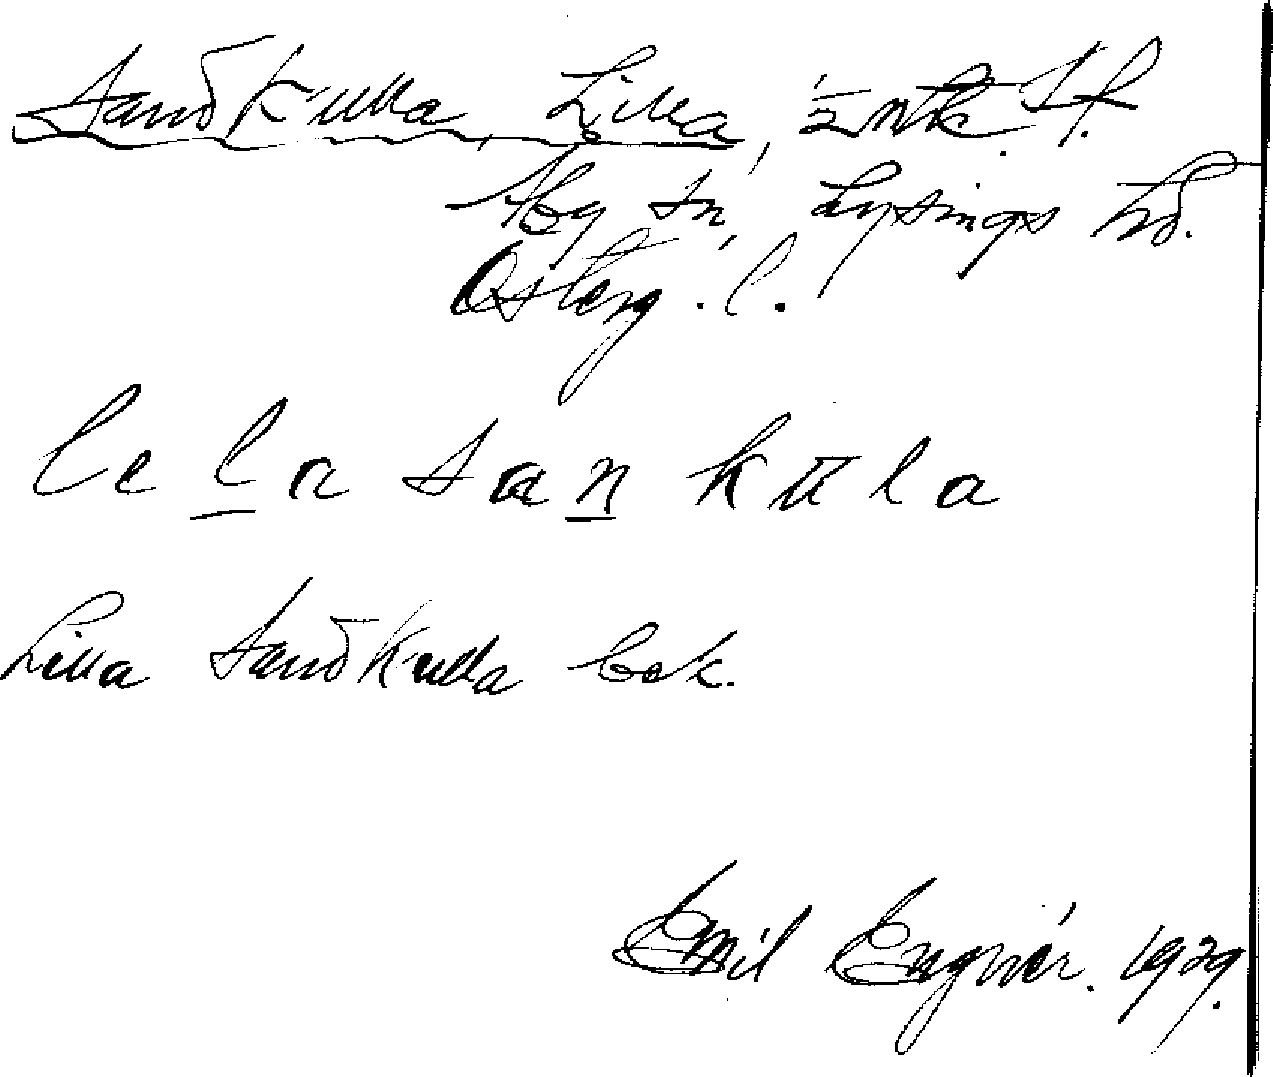 Sandkulla, Lilla, 1/2 mtl. Sk.
Åby sn, Lysings hd.
Österg. l.
le la san kūla
Lilla Sandkulla bek.
Emil Engnér. 1929.